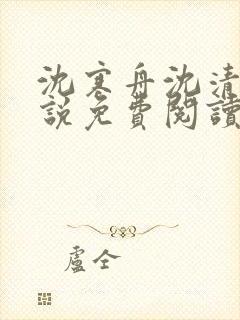 沈寒舟沈清
說免費閱讀
盧仝